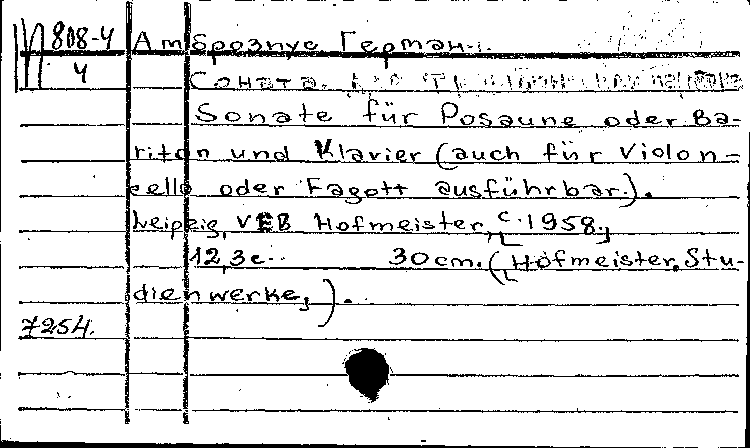 808-4 Амброзиус Герман.
4 Соната.
Sonate für Posaune oder Ba-
riton und Klavier (auch für Violon-
cello oder Fagott ausführbar.).
Leipzig, VEB Hofmeister, c. 1958.
12,3 с. 30 cm. (Hofmeister, Stu-
dienwerke,).
7254.